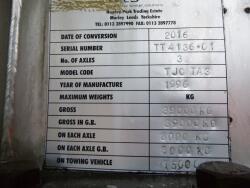 Burley Park Trading Estate
Morley Leeds Yorkshire
Tel: 0113 2897990 Fax: 0113 2897778
DATE OF CONVERSION 2016
TT4136-01
No. OF AXLES 3
MODEL CODE TJC TA3
YEAR OF MANUFACTURE 1996
MAXIMUM WEIGHTS KG
GROSS 39000 KG
GROSS IN G.B. 39000 KG
ON EACH AXLE 8000 KG
ON EACH AXLE G.B. 8000 KG
ON TOWING VEHICLE 1500